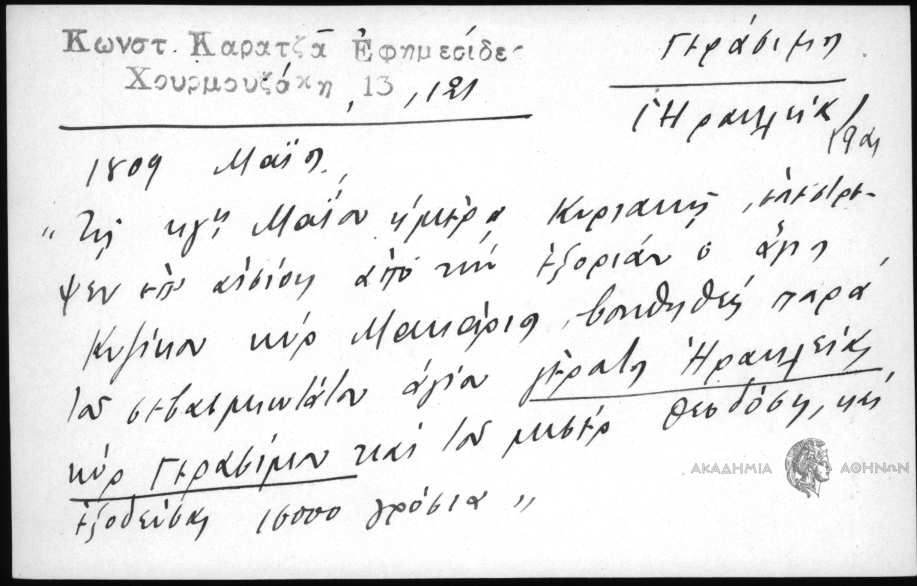 Κωνστ. Καρατζᾶ Ἐφημερίδες
Χουρμουζάκη, 13, 121
Γεράσιμος
Ἡρακλείας
1809 Μαΐος
"Τῇ κγῃ Μαΐου ἡμέρᾳ Κυριακῇ, ἐπέστρε-
ψεν ἐπ' αἰσίοις ἀπὸ τὴν ἐξορίαν ὁ ἅγιος
Κυζίκου κὺρ Μακάριος, βοηθηθεὶς παρὰ
τοῦ σεβασμιωτάτου ἁγίου γέροντος Ἡρακλείας
κὺρ Γερασίμου καὶ τοῦ μισὲρ Θεοδόση, καὶ
ἐξοδεύσας 15000 γρόσια"
ΑΚΑΔΗΜΙΑ ΑΘΗΝΩΝ